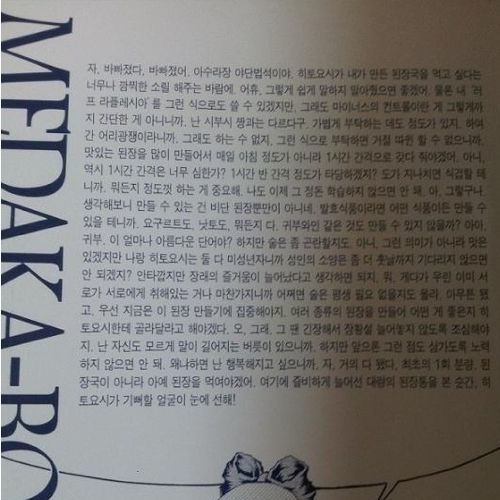 MEDAKA-BO
자, 바빠졌다, 바빠졌어. 아수라장 야단법석이야. 히토요시가 내가 만든 된장국을 먹고 싶다는
너무나 깜찍한 소릴 해주는 바람에. 어휴, 그렇게 쉽게 말하지 말아줬으면 좋겠어. 물론 내 '러
프 라플레시아'를 그런 식으로도 쓸 수 있겠지만, 그래도 마이너스의 컨트롤이란 게 그렇게까
지 간단한 게 아니니까. 난 시부시 짱과는 다르다구. 가볍게 부탁하는 데도 정도가 있지. 하여
간 어리광쟁이라니까. 그래도 하는 수 없지. 그런 식으로 부탁하면 거절 따윈 할 수 없으니까.
맛있는 된장을 많이 만들어서 매일 아침 정도가 아니라 1시간 간격으로 갖다 줘야겠어. 아니,
역시 1시간 간격은 너무 심한가? 1시간 반 간격 정도가 타당하겠지? 도가 지나치면 식겁할 테
니까. 뭐든지 정도껏 하는 게 중요해. 나도 이제 그 정돈 학습하지 않으면 안 돼. 아, 그렇구나.
생각해보니 만들 수 있는 건 비단 된장뿐만이 아니네. 발효식품이라면 어떤 식품이든 만들 수
있을 테니까. 요구르트도, 낫토도, 뭐든지 다. 귀부와인 같은 것도 만들 수 있지 않을까? 아아,
귀부. 이 얼마나 아름다운 단어야? 하지만 술은 좀 곤란할지도. 아니, 그런 의미가 아니라 맛은
있겠지만 나랑 히토요시는 둘 다 미성년자니까 성인의 소양은 좀 더 훗날까지 기다리지 않으면
안 되겠지? 안타깝지만 장래의 즐거움이 늘어났다고 생각하면 되지, 뭐. 게다가 우린 이미 서
로가 서로에게 취해있는 거나 마찬가지니까 어쩌면 술은 평생 필요 없을지도 몰라. 아무튼 됐
고, 우선 지금은 이 된장 만들기에 집중해야지. 여러 종류의 된장을 만들어 어떤 게 좋은지 히
토요시한테 골라달라고 해야겠다. 오, 그래. 그 땐 긴장해서 장황설 늘어놓지 않도록 조심해야
지. 난 자신도 모르게 말이 길어지는 버릇이 있으니까. 하지만 앞으론 그런 점도 삼가도록 노력
하지 않으면 안 돼. 왜냐하면 난 행복해지고 싶으니까. 자, 거의 다 됐다, 최초의 1회 분량. 된
장국이 아니라 아예 된장을 먹여야겠어. 여기에 즐비하게 늘어선 대량의 된장통을 본 순간, 히
토요시가 기뻐할 얼굴이 눈에 선해!